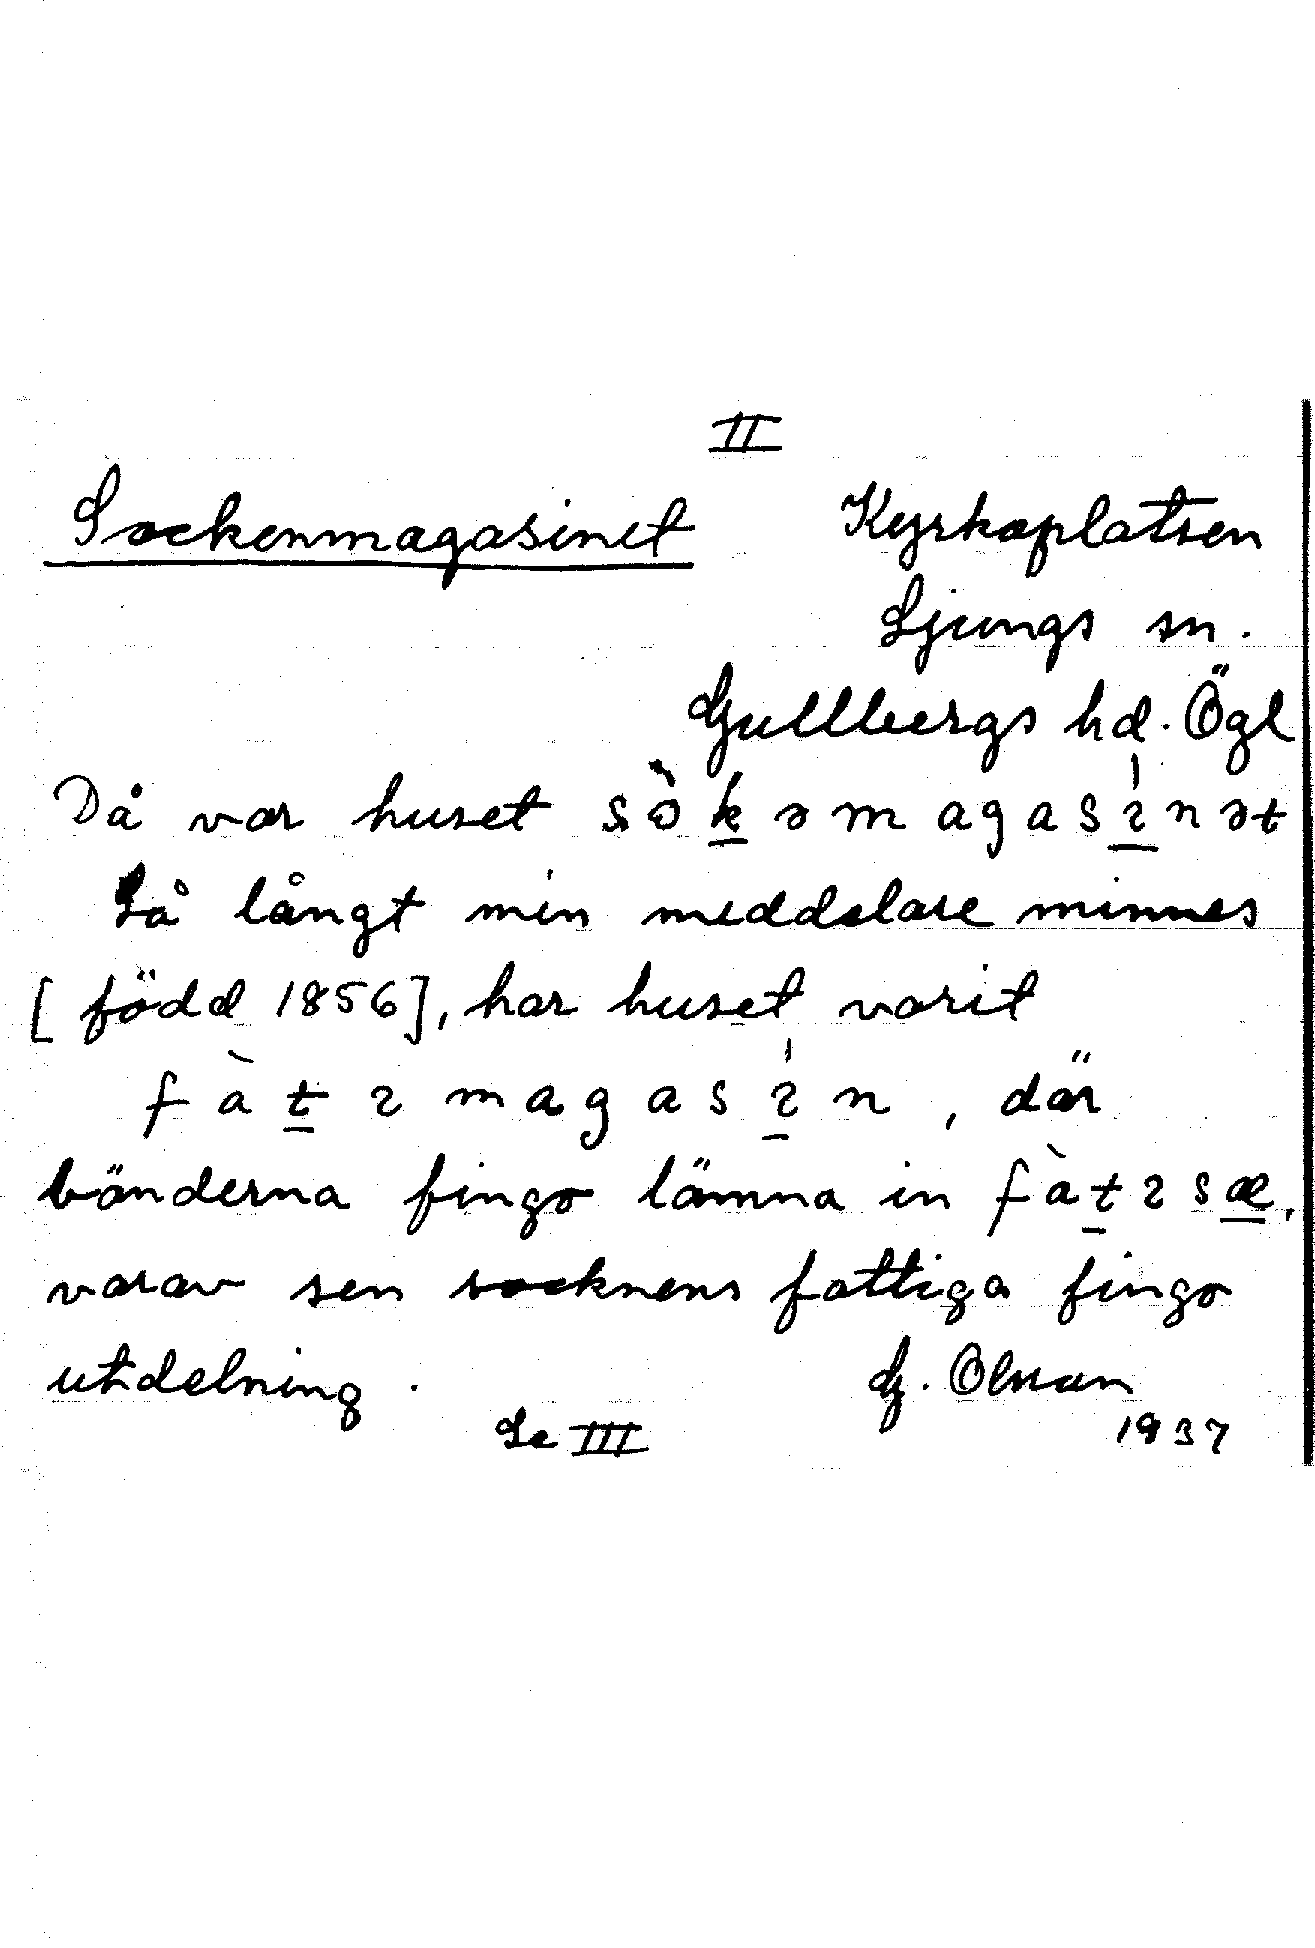 II
Sockenmagasinet Kyrkoplatsen
Ljungs sn.
Gullbergs hd. Ögl
Då var huset sòkəmagasínət
Så långt min meddelare minnes
[född 1856], har huset varit
fàtımagasín, där
bönderna fingo lämna in fàtısæ,
varav sen socknens fattiga fingo
utdelning. G. Olsson
Se III 1937